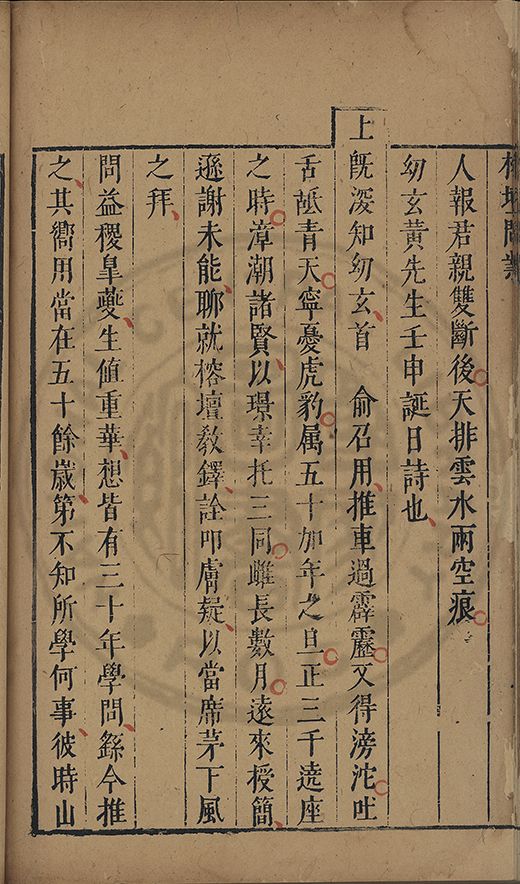 榕壇問業
人報君親雙斷後天排雲水兩空痕
幼玄黃先生壬申誕日詩也
上既深知幼玄首 俞召用推車過霹靂又得滂沱吐
舌䑛青天寧憂虎豹属五十加年之旦正三千遶座
之時漳潮諸賢以璟幸托三同雖長數月遠來授簡
遜謝未能聊就榕壇敎鐸詮叩膚疑以當席茅下風
之拜
問益稷皐夔生值重華想皆有三十年學問繇今推
之其嚮用當在五十餘歲第不知所學何事彼時山